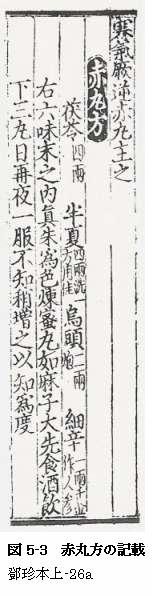 寒氣厥逆赤丸主之
赤丸方
茯苓四兩 半夏四兩洗一方用桂 烏頭二兩炮 細辛一兩千金作人参
右六味末之内真朱爲色煉蜜丸如麻子大先食酒飲
下三丸日再夜一服不知稍增之以知爲度
図 5-3 赤丸方の記載
鄧珍本上-26a